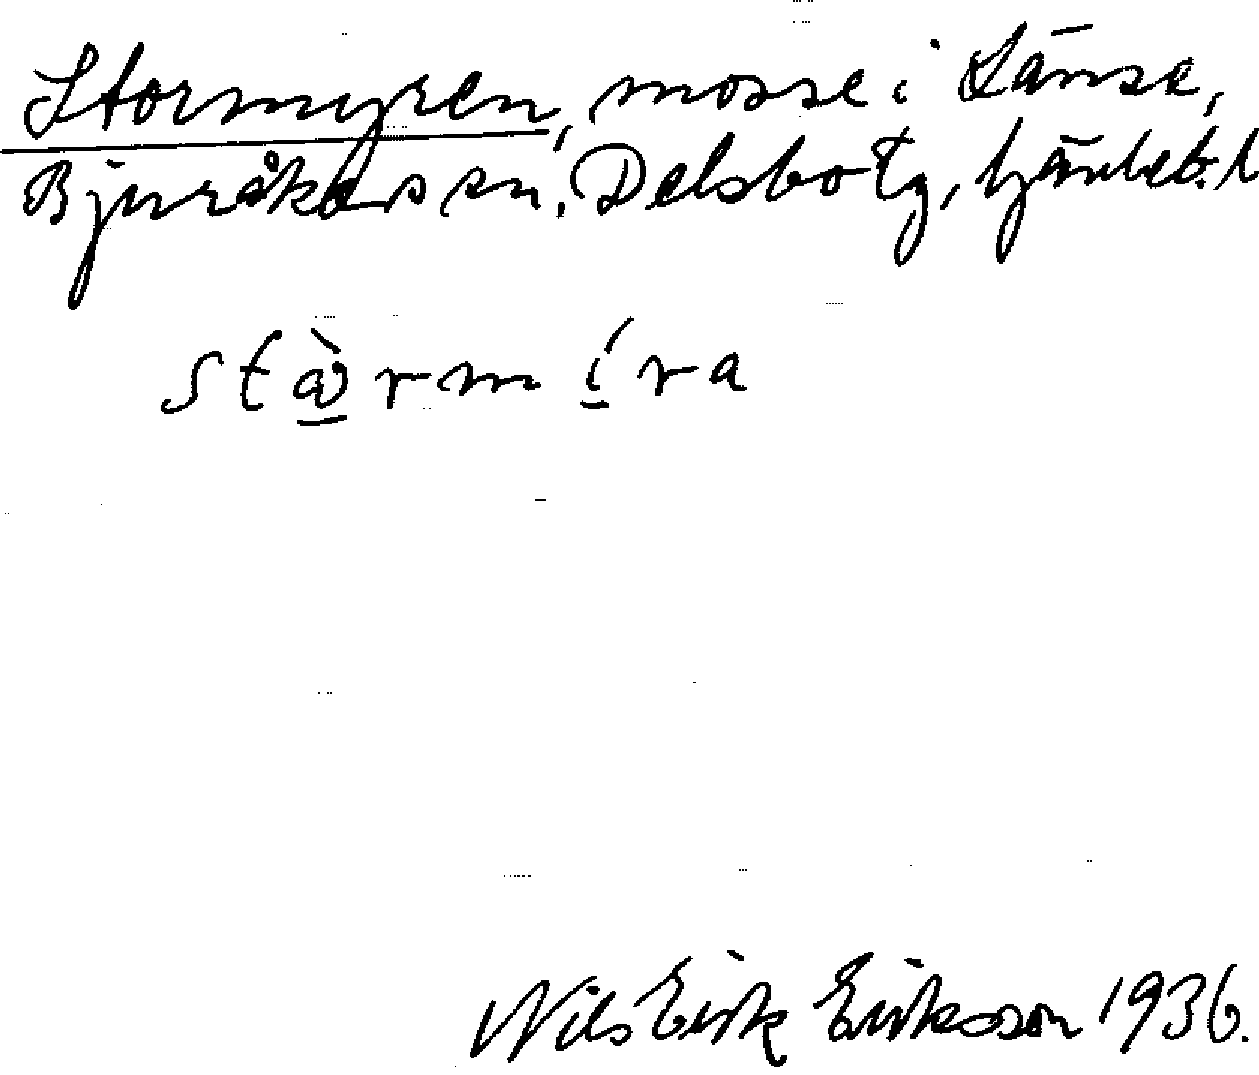 Stormyren, mosse i Länse,
Bjuråkers sn. Delsbo tg,
stårmíra
Nils Erik Eriksson 1936.